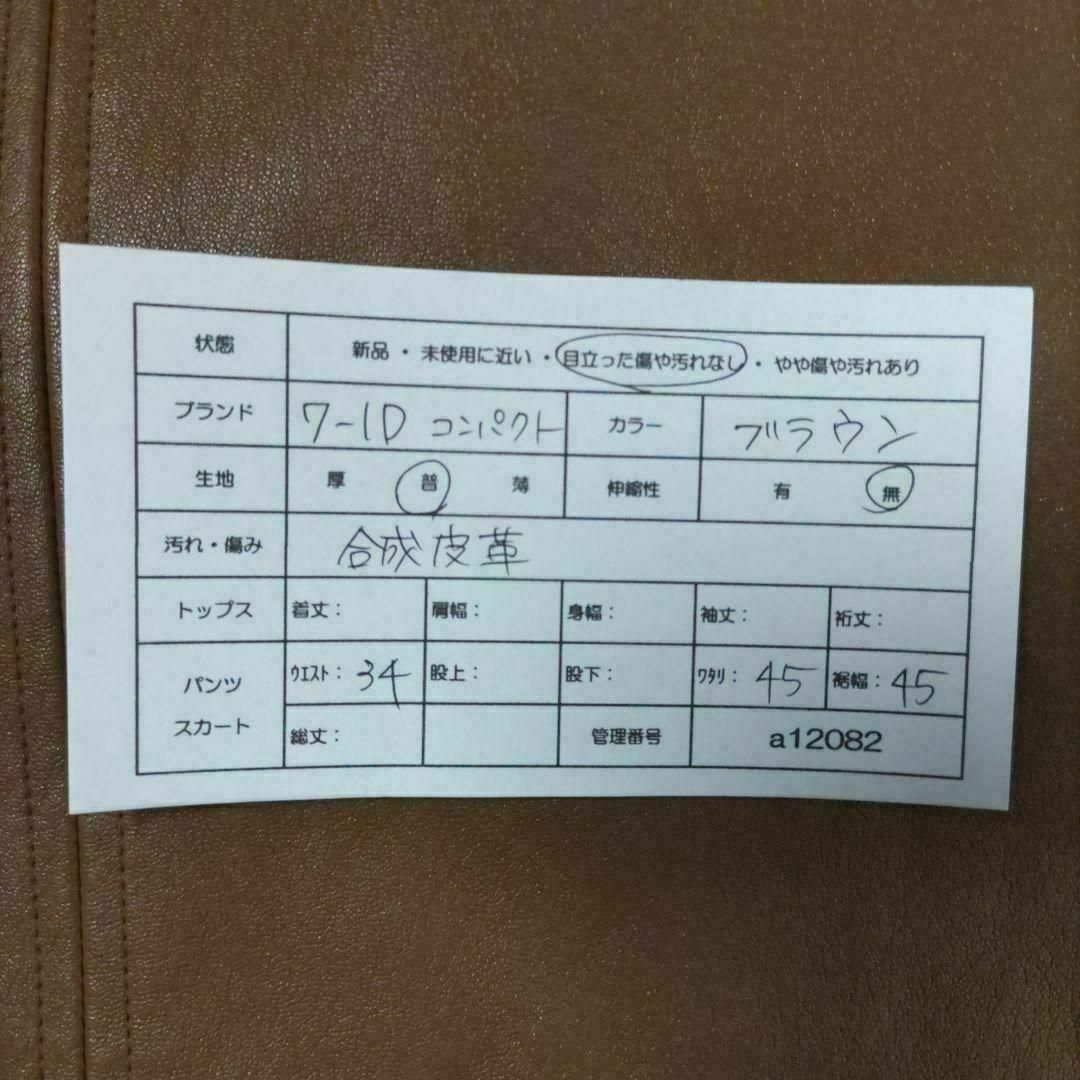 状態 新品・未使用に近い・目立った傷や汚れなし・やや傷や汚れあり
ブランド 7-ID コンパクト カラー ブラウン
生地 厚 普 薄 伸縮性 有 無
汚れ・傷み 合成皮革
トップス 着丈： 肩幅： 身幅： 袖丈： 裄丈：
パンツ スカート ウエスト：34 股上： 股下： ワタリ：45 裾幅：45
総丈： 管理番号 a12082